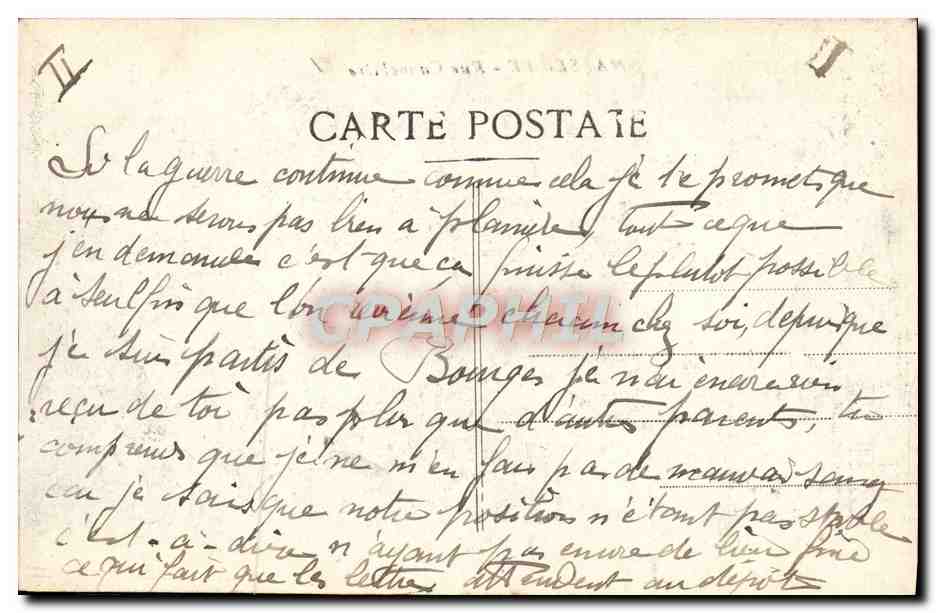 II
I
CARTE POSTALE
Si la guerre continue comme cela je te promets que
nous ne serons pas bien à plaindre, tout ce que
j'en demande c'est que ça finisse le plutot possible
à seul fin que l'on revienne chacun chez soi, depuis que
je suis partis de Bourges je n'ai encore rien
reçu de toi pas plus que d'autres parents, tu
comprends que je ne m'en fais pas de mauvais sang
car je sais que notre position n'étant pas stable
c'est-à-dire n'ayant pas encore de lieu fixe
ce qui fait que les lettres attendent au dépôt
CPAPHIL